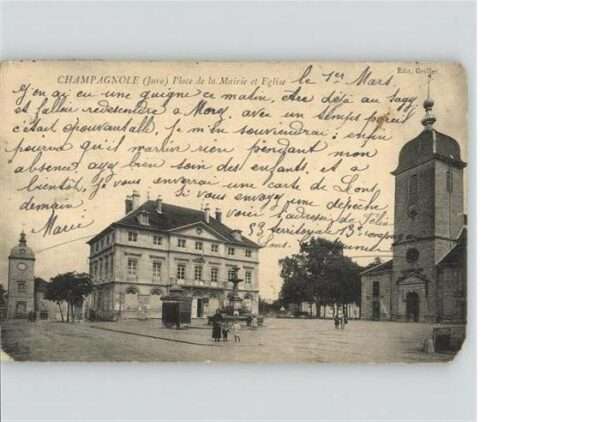 CHAMPAGNOLE (Jura) Place de la Mairie et Eglise
Edit.
le 1er Mars,
J'en ai eu une guigne ce matin, être déjà au
et falloir redescendre à avec un temps pareil
c'était épouvantable, je m'en souviendrai; enfin
pourvu qu'il rien pendant mon
absence, ayez bien soin des enfants, et à
bientôt, je vous enverrai une carte de Lons,
demain. si vous envoyez une dépêche,
Marie voici l'adresse de
53 territoriale 13e
Lons